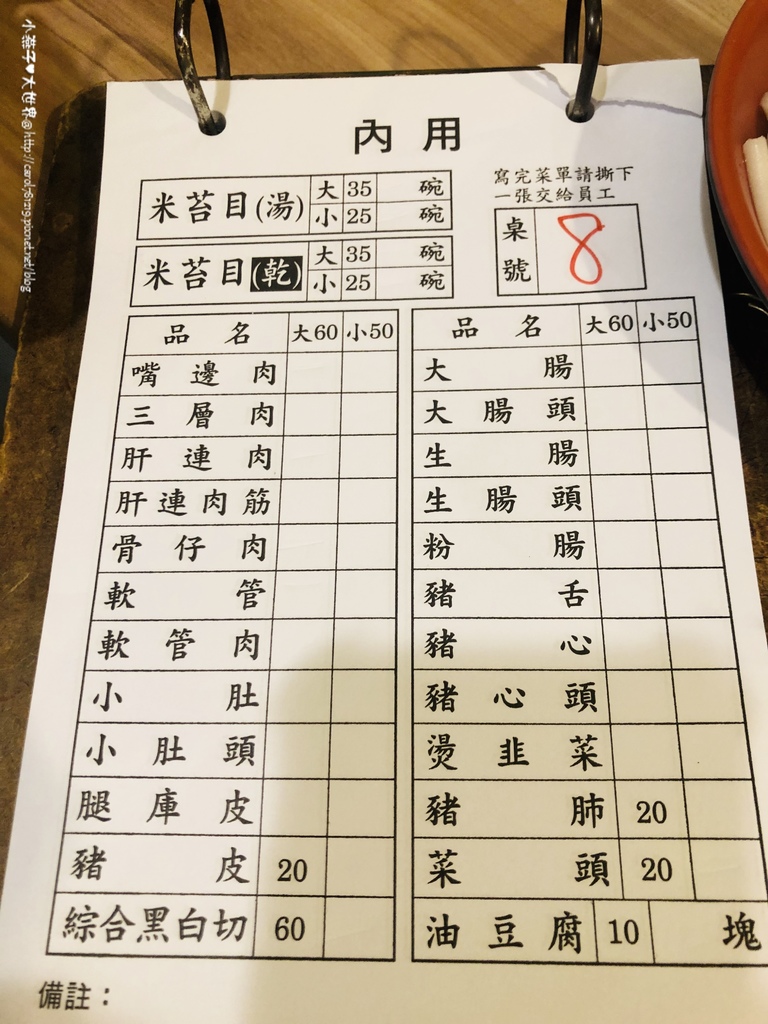 小蔡子♥大世界@http://carol^51mg.pixnet.net/blog
內用
米苔目(湯) 大 35 碗
小 25 碗
米苔目(乾) 大 35 碗
小 25 碗
寫完菜單請撕下
一張交給員工
桌號 8
品名 大60 小50
嘴邊肉
三層肉
肝連肉
肝連肉筋
骨仔肉
軟管
軟管肉
小肚
小肚頭
腿庫皮
豬皮 20
綜合黑白切 60
品名 大60 小50
大腸
大腸頭
生腸
生腸頭
粉腸
豬舌
豬心
豬心頭
燙韭菜
豬肺 20
菜頭 20
油豆腐 10 塊
備註：